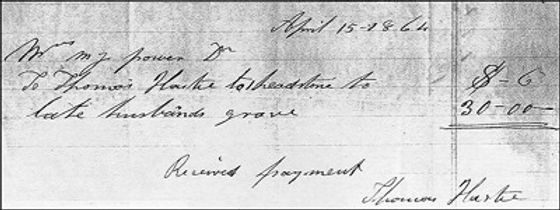 April 15-1864
Mrs M J power Dr
To Thomas Hartie to headstone to
late husbands grave
$ - c
30-00
Received payment
Thomas Hartie